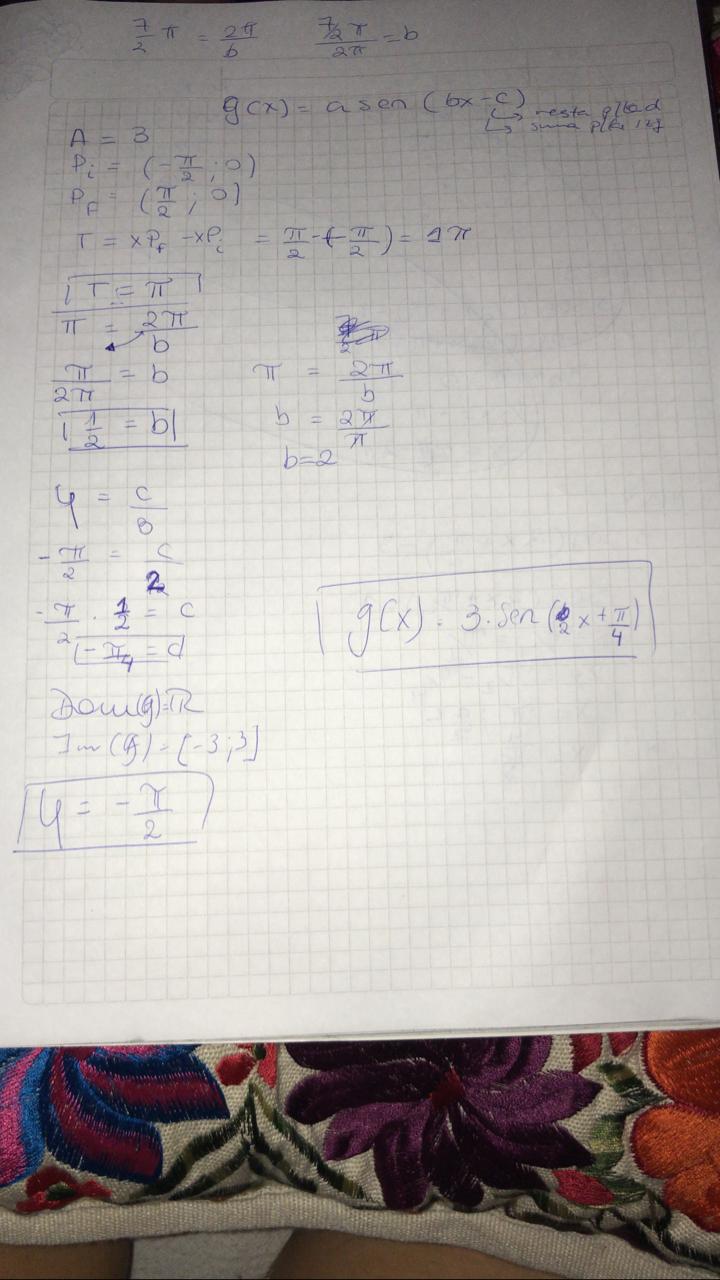 7/2 π = 2π/b    7/2 π / 2π = b
g(x) = a sen (bx - c)
↳ resta
↳ suma
A = 3
Pi = (-π/2 ; 0)
Pf = (π/2 ; 0)
T = xPf - xPi = π/2 - (-π/2) = 1π
T = π
π = 2π/b
π/2π = b    π = 2π/b
1/2 = b    b = 2π/π
b=2
φ = c/B
-π/2 = c/2
-π/2 · 1/2 = c    g(x) = 3·Sen (2x + π/4)
-π/4 = c
Dom(g)=ℝ
Im(g) = [-3;3]
φ = -π/2